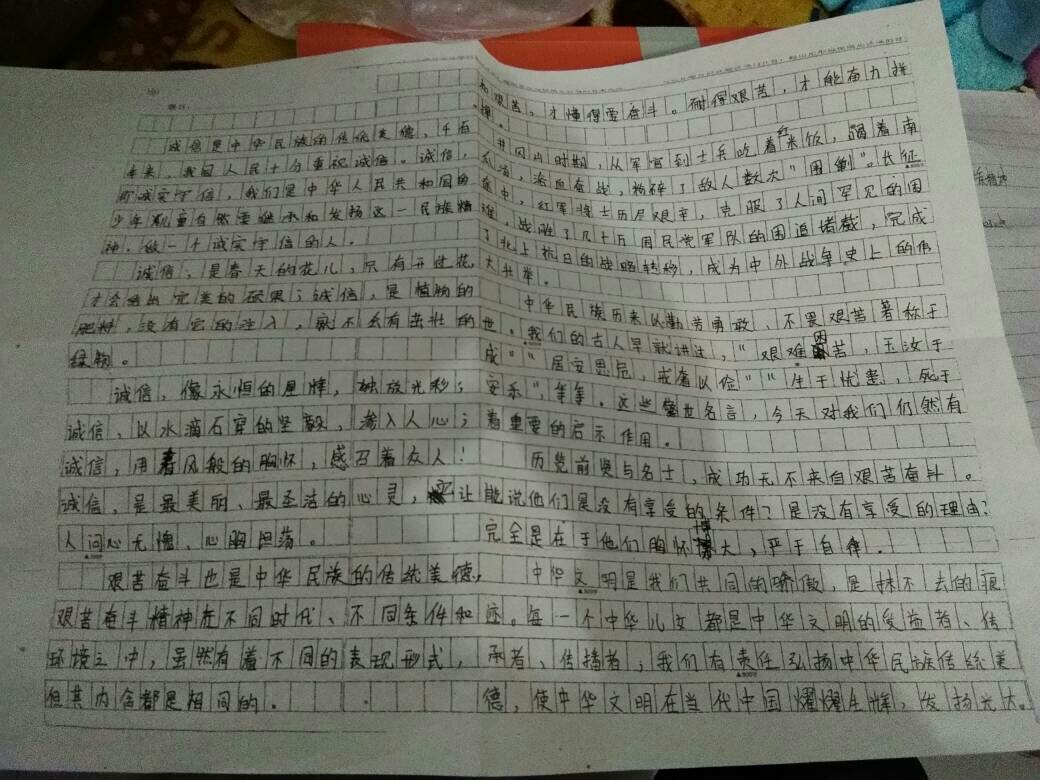 诚信是中华民族的传统美德，千百
年来，我国人民十分重视诚信。诚信，
即诚实守信，我们是中华人民共和国的
少年儿童自然要继承和发扬这一民族精
神，做一个诚实守信的人。
诚信，是春天的花儿，只有开过花，
才会结出完美的硕果；诚信，是植物的
肥料，没有它的注入，就不会有茁壮的
绿物。
诚信，像永恒的星辉，独放光彩；
诚信，以水滴石穿的坚毅，渗入人心；
诚信，用春风般的胸怀，感召着众人！
诚信，是最美丽、最圣洁的心灵，让
人问心无愧、心胸坦荡。
艰苦奋斗也是中华民族的传统美德，
艰苦奋斗精神在不同时代、不同条件和
环境之中，虽然有着不同的表现形式，
但其内含都是相同的。
知艰苦，才懂得要奋斗。耐得艰苦，才能奋力拼
搏。
井冈山时期，从军官到士兵吃着红米饭，喝着南
瓜汤，浴血奋战，粉碎了敌人数次“围剿”。长征
途中，红军将士历尽艰辛，克服了人间罕见的困
难，战胜了几十万国民党军队的围追堵截，完成
了北上抗日的战略转移，成为中外战争史上的伟
大壮举。
中华民族历来以勤劳勇敢、不畏艰苦著称于
世。我们的古人早就讲过，“艰难困苦，玉汝于
成”“居安思危，戒奢以俭”“生于忧患，死于
安乐”，等等。这些警世名言，今天对我们仍然有
着重要的启示作用。
历览前贤与名士，成功无不来自艰苦奋斗。
能说他们是没有享受的条件？是没有享受的理由？
完全是在于他们胸怀博大，严于自律.
中华文明是我们共同的骄傲，是抹不去的痕
迹。每一个中华儿女都是中华文明的受益者、传
承者、传播者，我们有责任弘扬中华民族传统美
德，使中华文明在当代中国熠熠生辉，发扬光大。